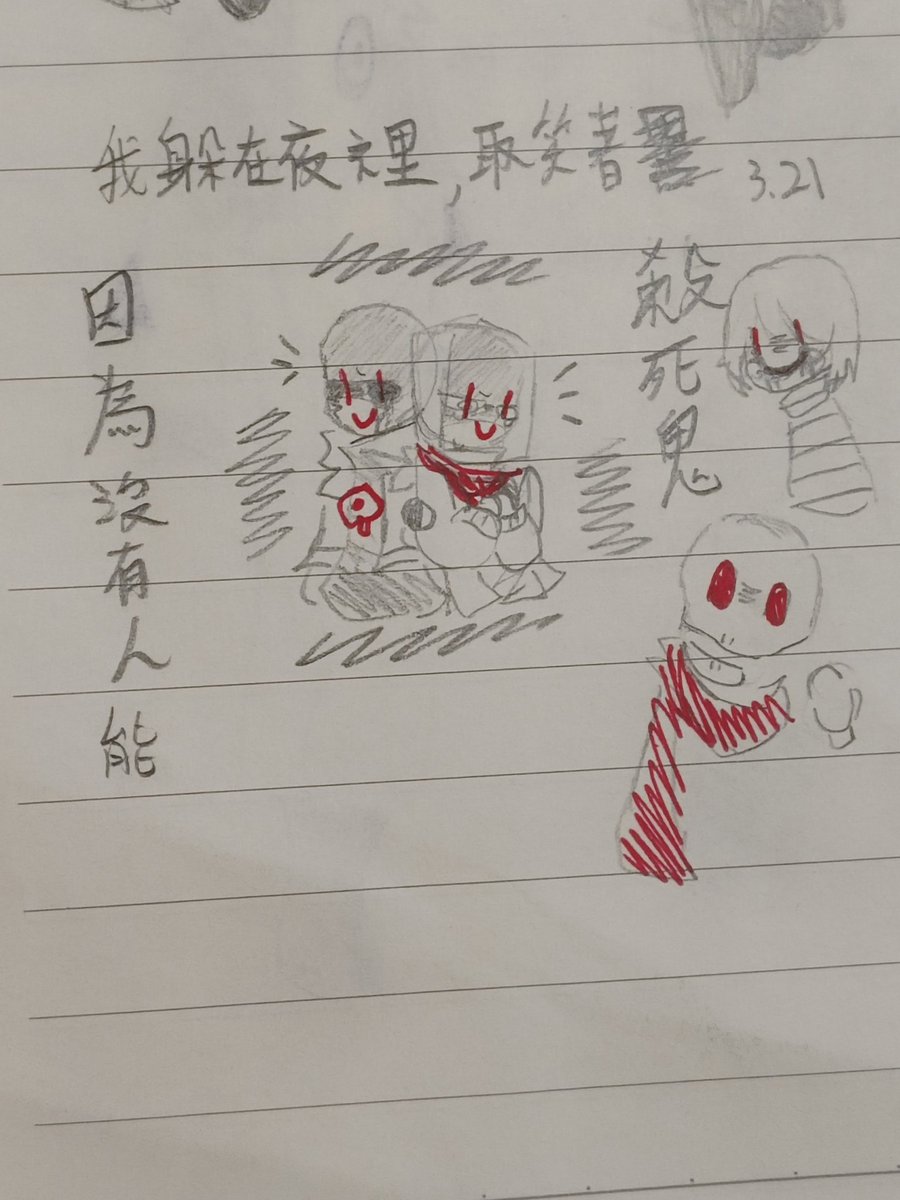 我躲在夜裡,取笑著黑 3.21
因為沒有人能
殺死鬼